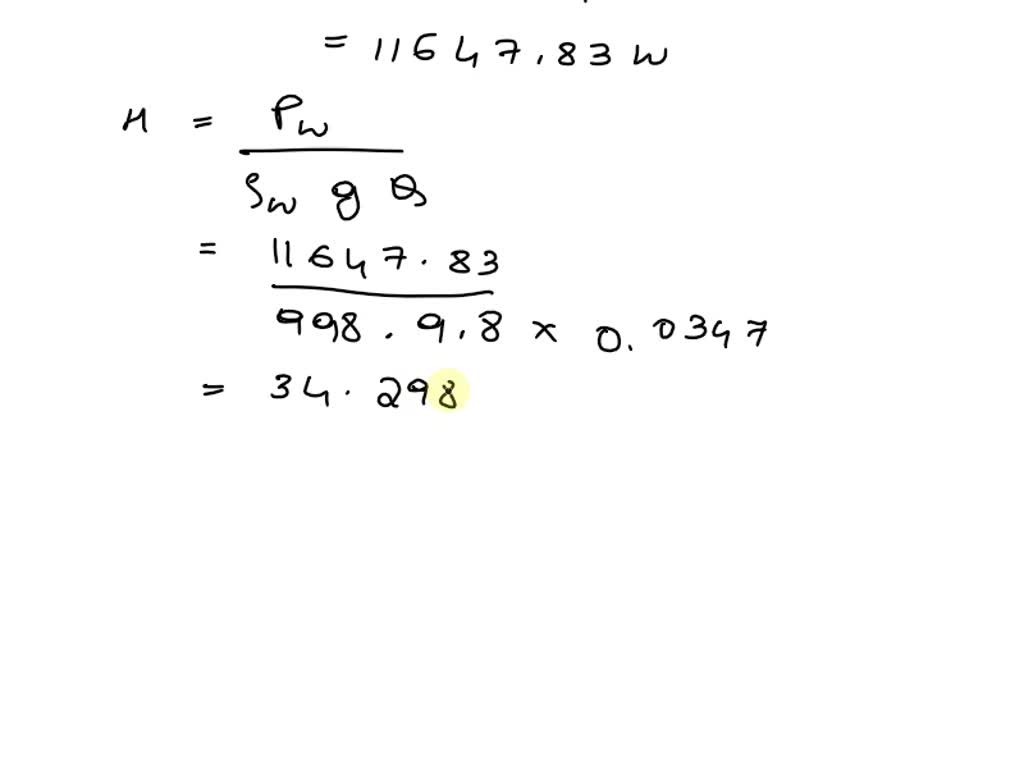 = 11647.83 W
H = Pw
ρw g Q
= 11647.83
998 . 9.8 × 0.0347
= 34.298